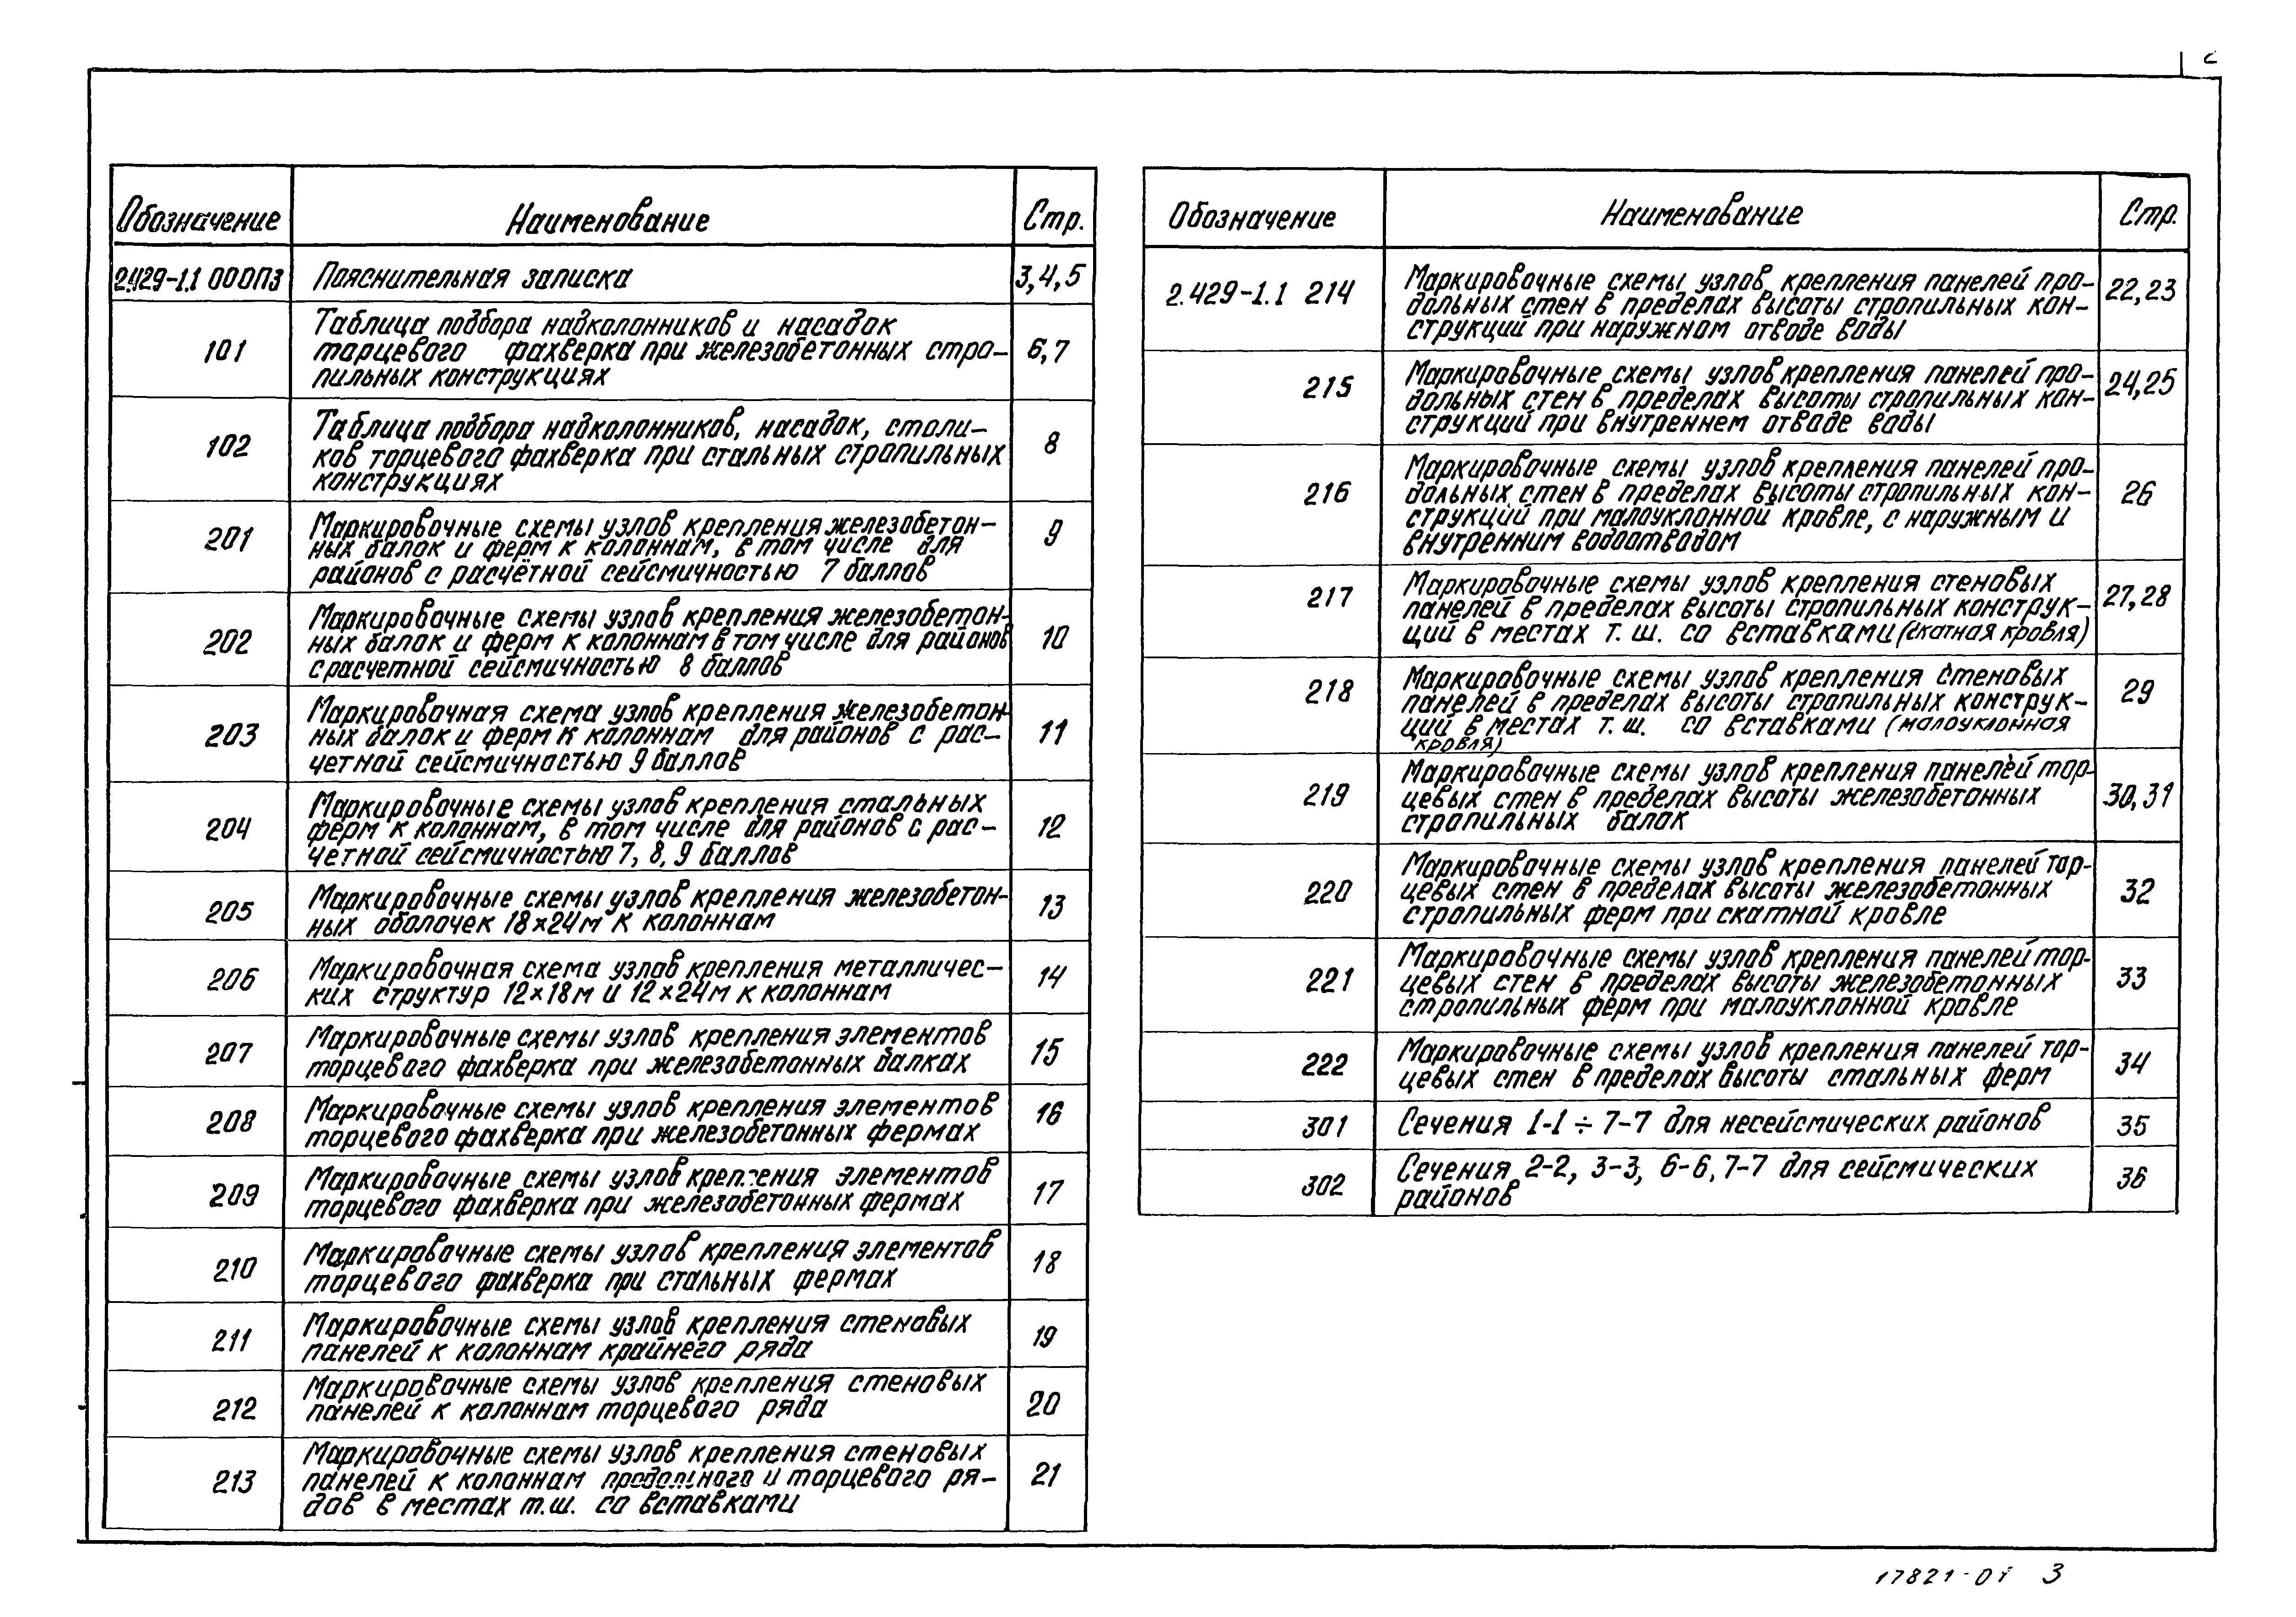 2
Обозначение Наименование Стр.
2.429-1.1 000ПЗ Пояснительная записка 3,4,5
101 Таблица подбора надколонников и насадок
торцевого фахверка при железобетонных стро- 6,7
пильных конструкциях
102 Таблица подбора надколонников, насадок, столи- 8
ков торцевого фахверка при стальных стропильных
конструкциях
201 Маркировочные схемы узлов крепления железобетон- 9
ных балок и ферм к колоннам, в том числе для
районов с расчётной сейсмичностью 7 баллов
202 Маркировочные схемы узлов крепления железобетон- 10
ных балок и ферм к колоннам в том числе для районов
с расчетной сейсмичностью 8 баллов
203 Маркировочная схема узлов крепления железобетон- 11
ных балок и ферм к колоннам для районов с рас-
четной сейсмичностью 9 баллов
204 Маркировочные схемы узлов крепления стальных 12
ферм к колоннам, в том числе для районов с рас-
четной сейсмичностью 7, 8, 9 баллов
205 Маркировочные схемы узлов крепления железобетон- 13
ных оболочек 18×24м к колоннам
206 Маркировочная схема узлов крепления металличес- 14
ких структур 12×18м и 12×24м к колоннам
207 Маркировочные схемы узлов крепления элементов 15
торцевого фахверка при железобетонных балках
208 Маркировочные схемы узлов крепления элементов 16
торцевого фахверка при железобетонных фермах
209 Маркировочные схемы узлов крепления элементов 17
торцевого фахверка при железобетонных фермах
210 Маркировочные схемы узлов крепления элементов 18
торцевого фахверка при стальных фермах
211 Маркировочные схемы узлов крепления стеновых 19
панелей к колоннам крайнего ряда
212 Маркировочные схемы узлов крепления стеновых 20
панелей к колоннам торцевого ряда
213 Маркировочные схемы узлов крепления стеновых 21
панелей к колоннам продольного и торцевого ря-
дов в местах т.ш. со вставками
Обозначение Наименование Стр.
2.429-1.1 214 Маркировочные схемы узлов крепления панелей про- 22,23
дольных стен в пределах высоты стропильных кон-
струкций при наружном отводе воды
215 Маркировочные схемы узлов крепления панелей про- 24,25
дольных стен в пределах высоты стропильных кон-
струкций при внутреннем отводе воды
216 Маркировочные схемы узлов крепления панелей про- 26
дольных стен в пределах высоты стропильных кон-
струкций при малоуклонной кровле, с наружным и
внутренним водоотводом
217 Маркировочные схемы узлов крепления стеновых 27,28
панелей в пределах высоты стропильных конструк-
ций в местах т. ш. со вставками (скатная кровля)
218 Маркировочные схемы узлов крепления стеновых 29
панелей в пределах высоты стропильных конструк-
ций в местах т. ш. со вставками (малоуклонная
кровля)
219 Маркировочные схемы узлов крепления панелей тор- 30,31
цевых стен в пределах высоты железобетонных
стропильных балок
220 Маркировочные схемы узлов крепления панелей тор- 32
цевых стен в пределах высоты железобетонных
стропильных ферм при скатной кровле
221 Маркировочные схемы узлов крепления панелей тор- 33
цевых стен в пределах высоты железобетонных
стропильных ферм при малоуклонной кровле
222 Маркировочные схемы узлов крепления панелей тор- 34
цевых стен в пределах высоты стальных ферм
301 Сечения 1-1 ÷ 7-7 для несейсмических районов 35
302 Сечения 2-2, 3-3, 6-6, 7-7 для сейсмических 36
районов
17821-01 3